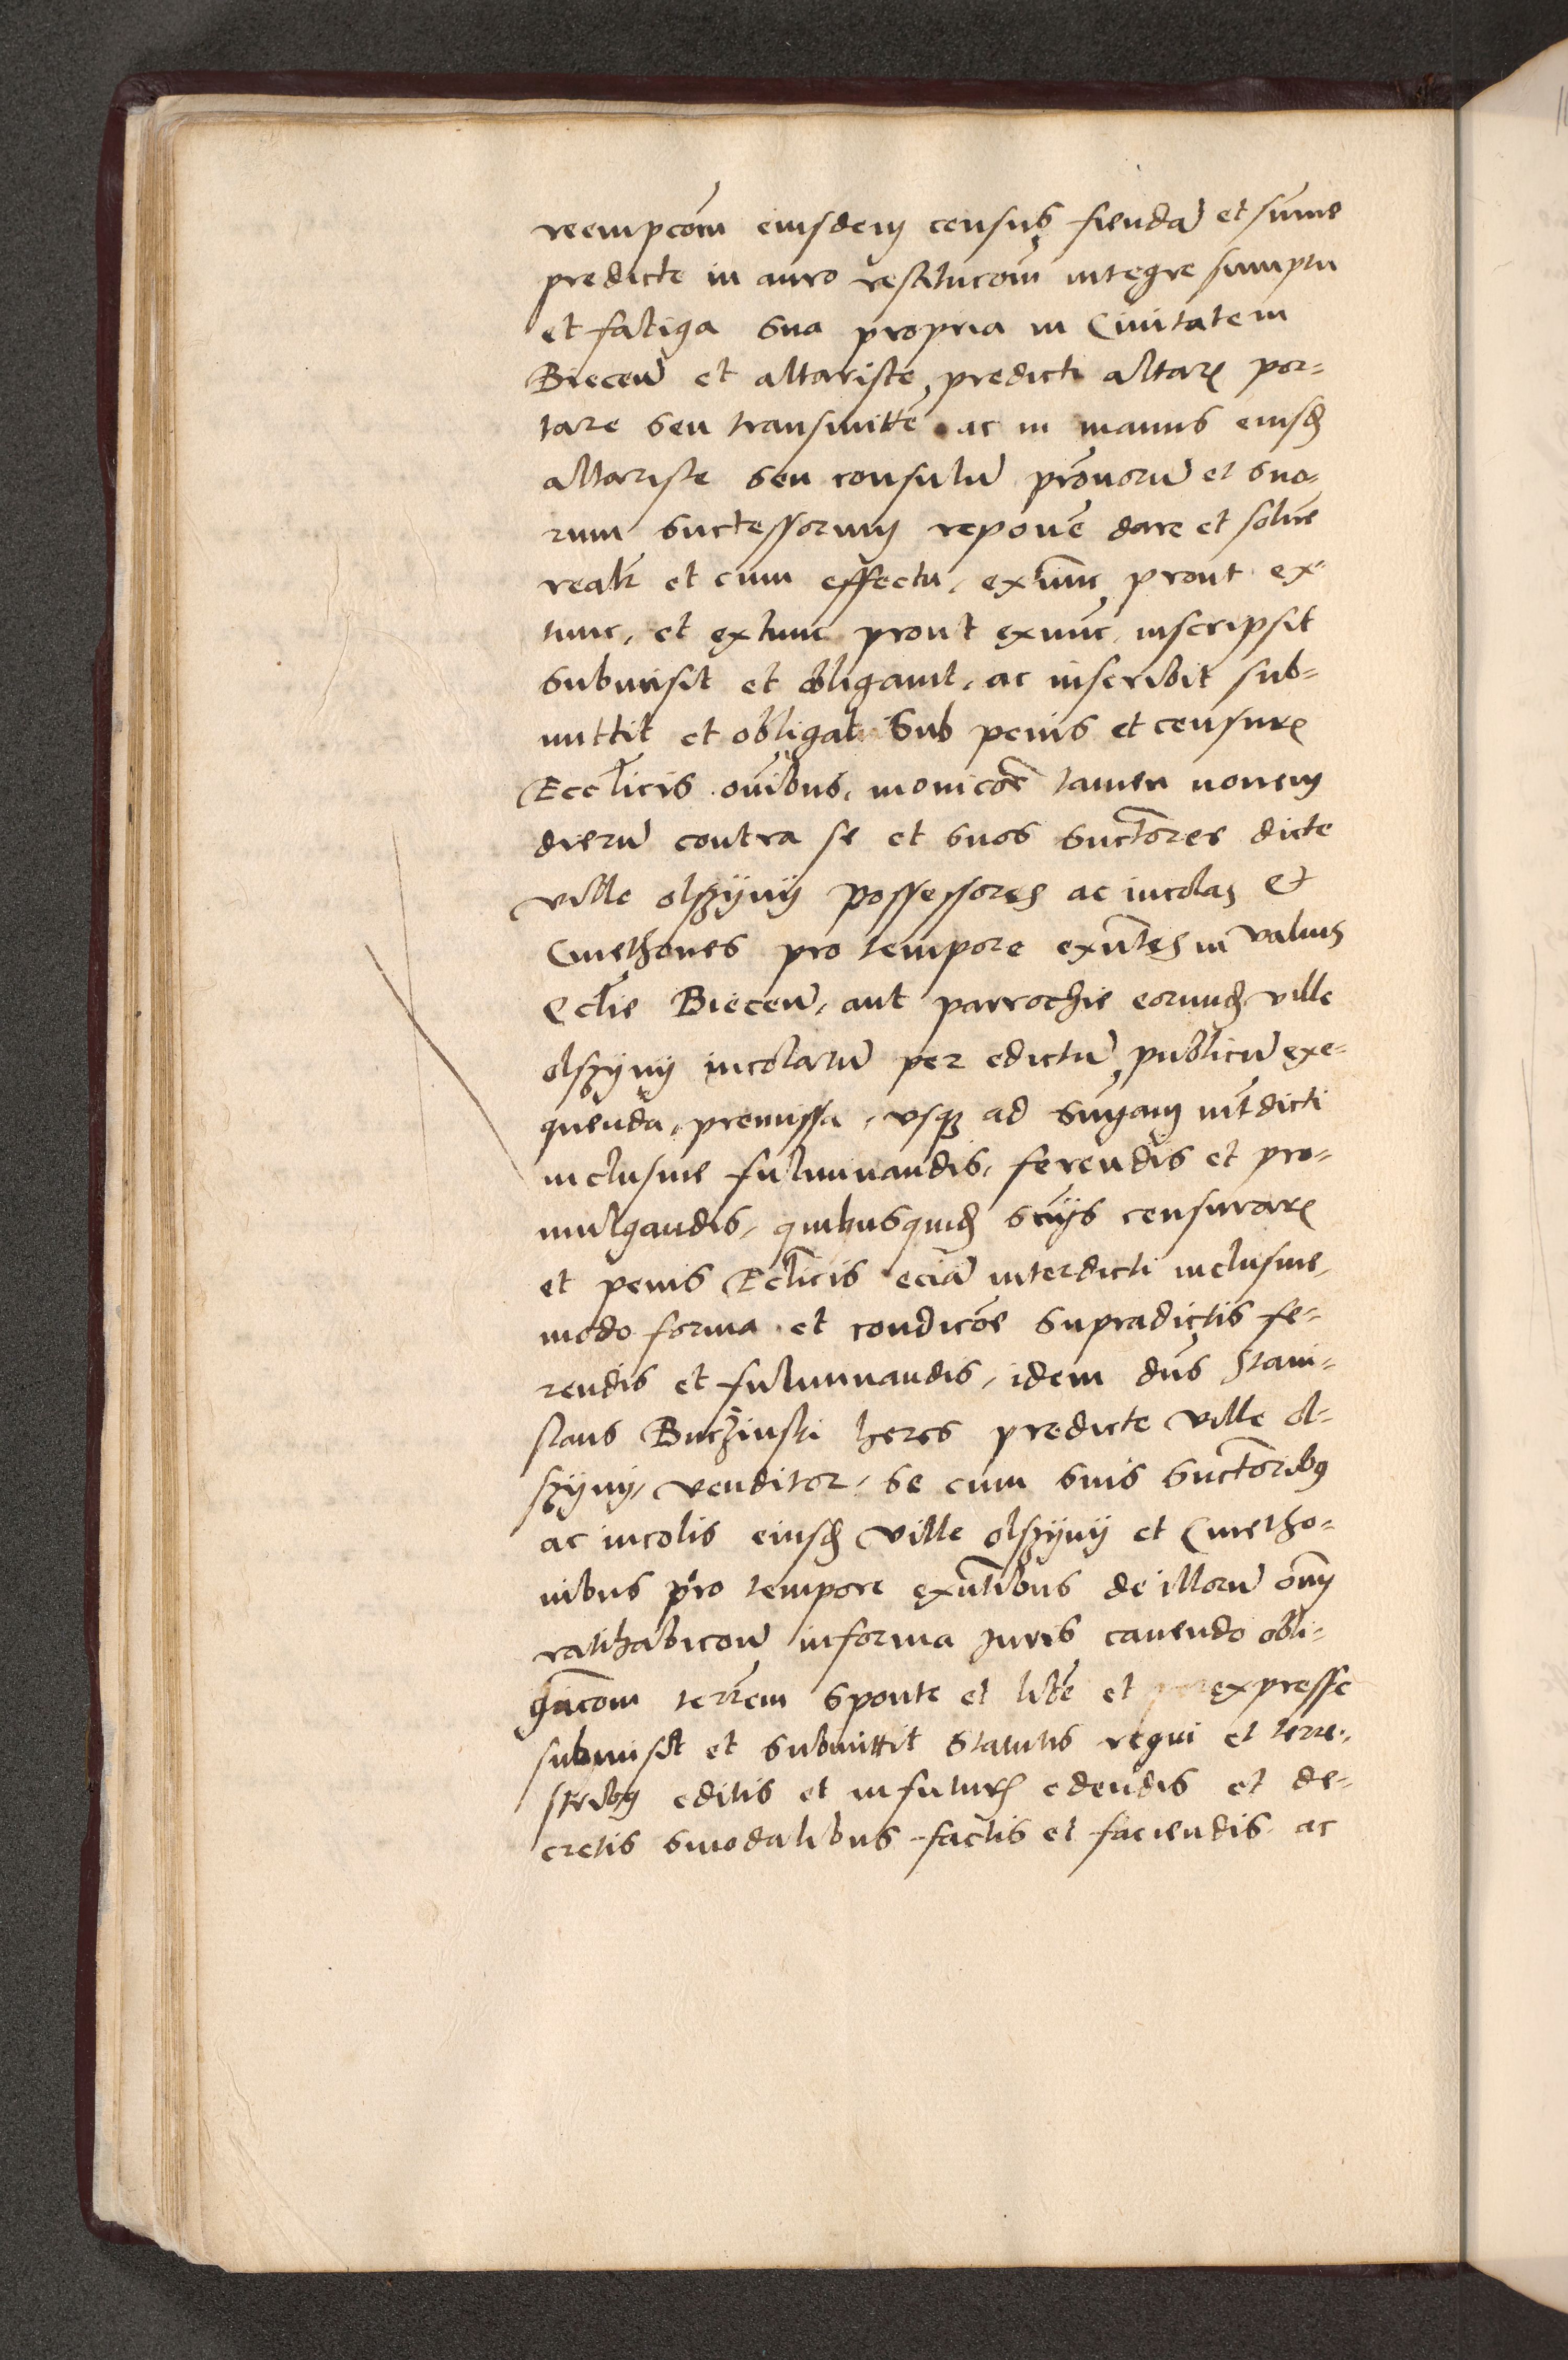 reempcōm eiusdem census fiendā et sūme
predicte in auro restitucōm integre sumptu
et fatiga sua propria in Ciuitatem
Biecen̄ et altariste predicti altar̄ por-
tare seu transmittē ac in manus eiusd̄
altariste seu consulū pn̄orū et suo-
rum suctessorum reponē dare et solūe
realr̄ et cum effectu, exnūnc prout ex
tunc, et extunc prout exnūc, inscripsit
submisit et obligauit, ac inscribit sub-
mittit et obligat Sub penis et censur̄
Eccl̄icis om̄ibus, monicōe tamen nouem
dierū contra se et suos suctōres dicte
ville olszyny possessores ac incolas Et
Cmethones pro tempore exn̄tes in valuis
Eccl̄ie Biecen̄, aut parrochie eorund̄ ville
olszyny incolarū per edictū publicū exe-
quenda, premissa, vsq̄ ad singam int̄dicti
inclusiue fulminandis, ferendis et pro-
mulgandis, quibusquid̄ sn̄ijs censurar̄
et penis Ecl̄icis eciā interdicti inclusiue,
modo forma et condicōe supradictis fe-
rendis et fulminandis, idem dn̄s Stani-
slaus Buczinski heres predicte ville ol-
szyny, venditor, se cum suis suctōribus
ac incolis eiusd̄ ville olszyny et Cmetho-
nibus pro tempore exn̄tibus de illorū om̄
ratihabicōn̄ informa Juris cauendo obli-
gacōm terrēm sponte et libē et expresse
submisit et submittit statutis regni et terre-
stribus editis et infutur̄ edendis et de-
cretis sinodalibus factis et faciendis ac